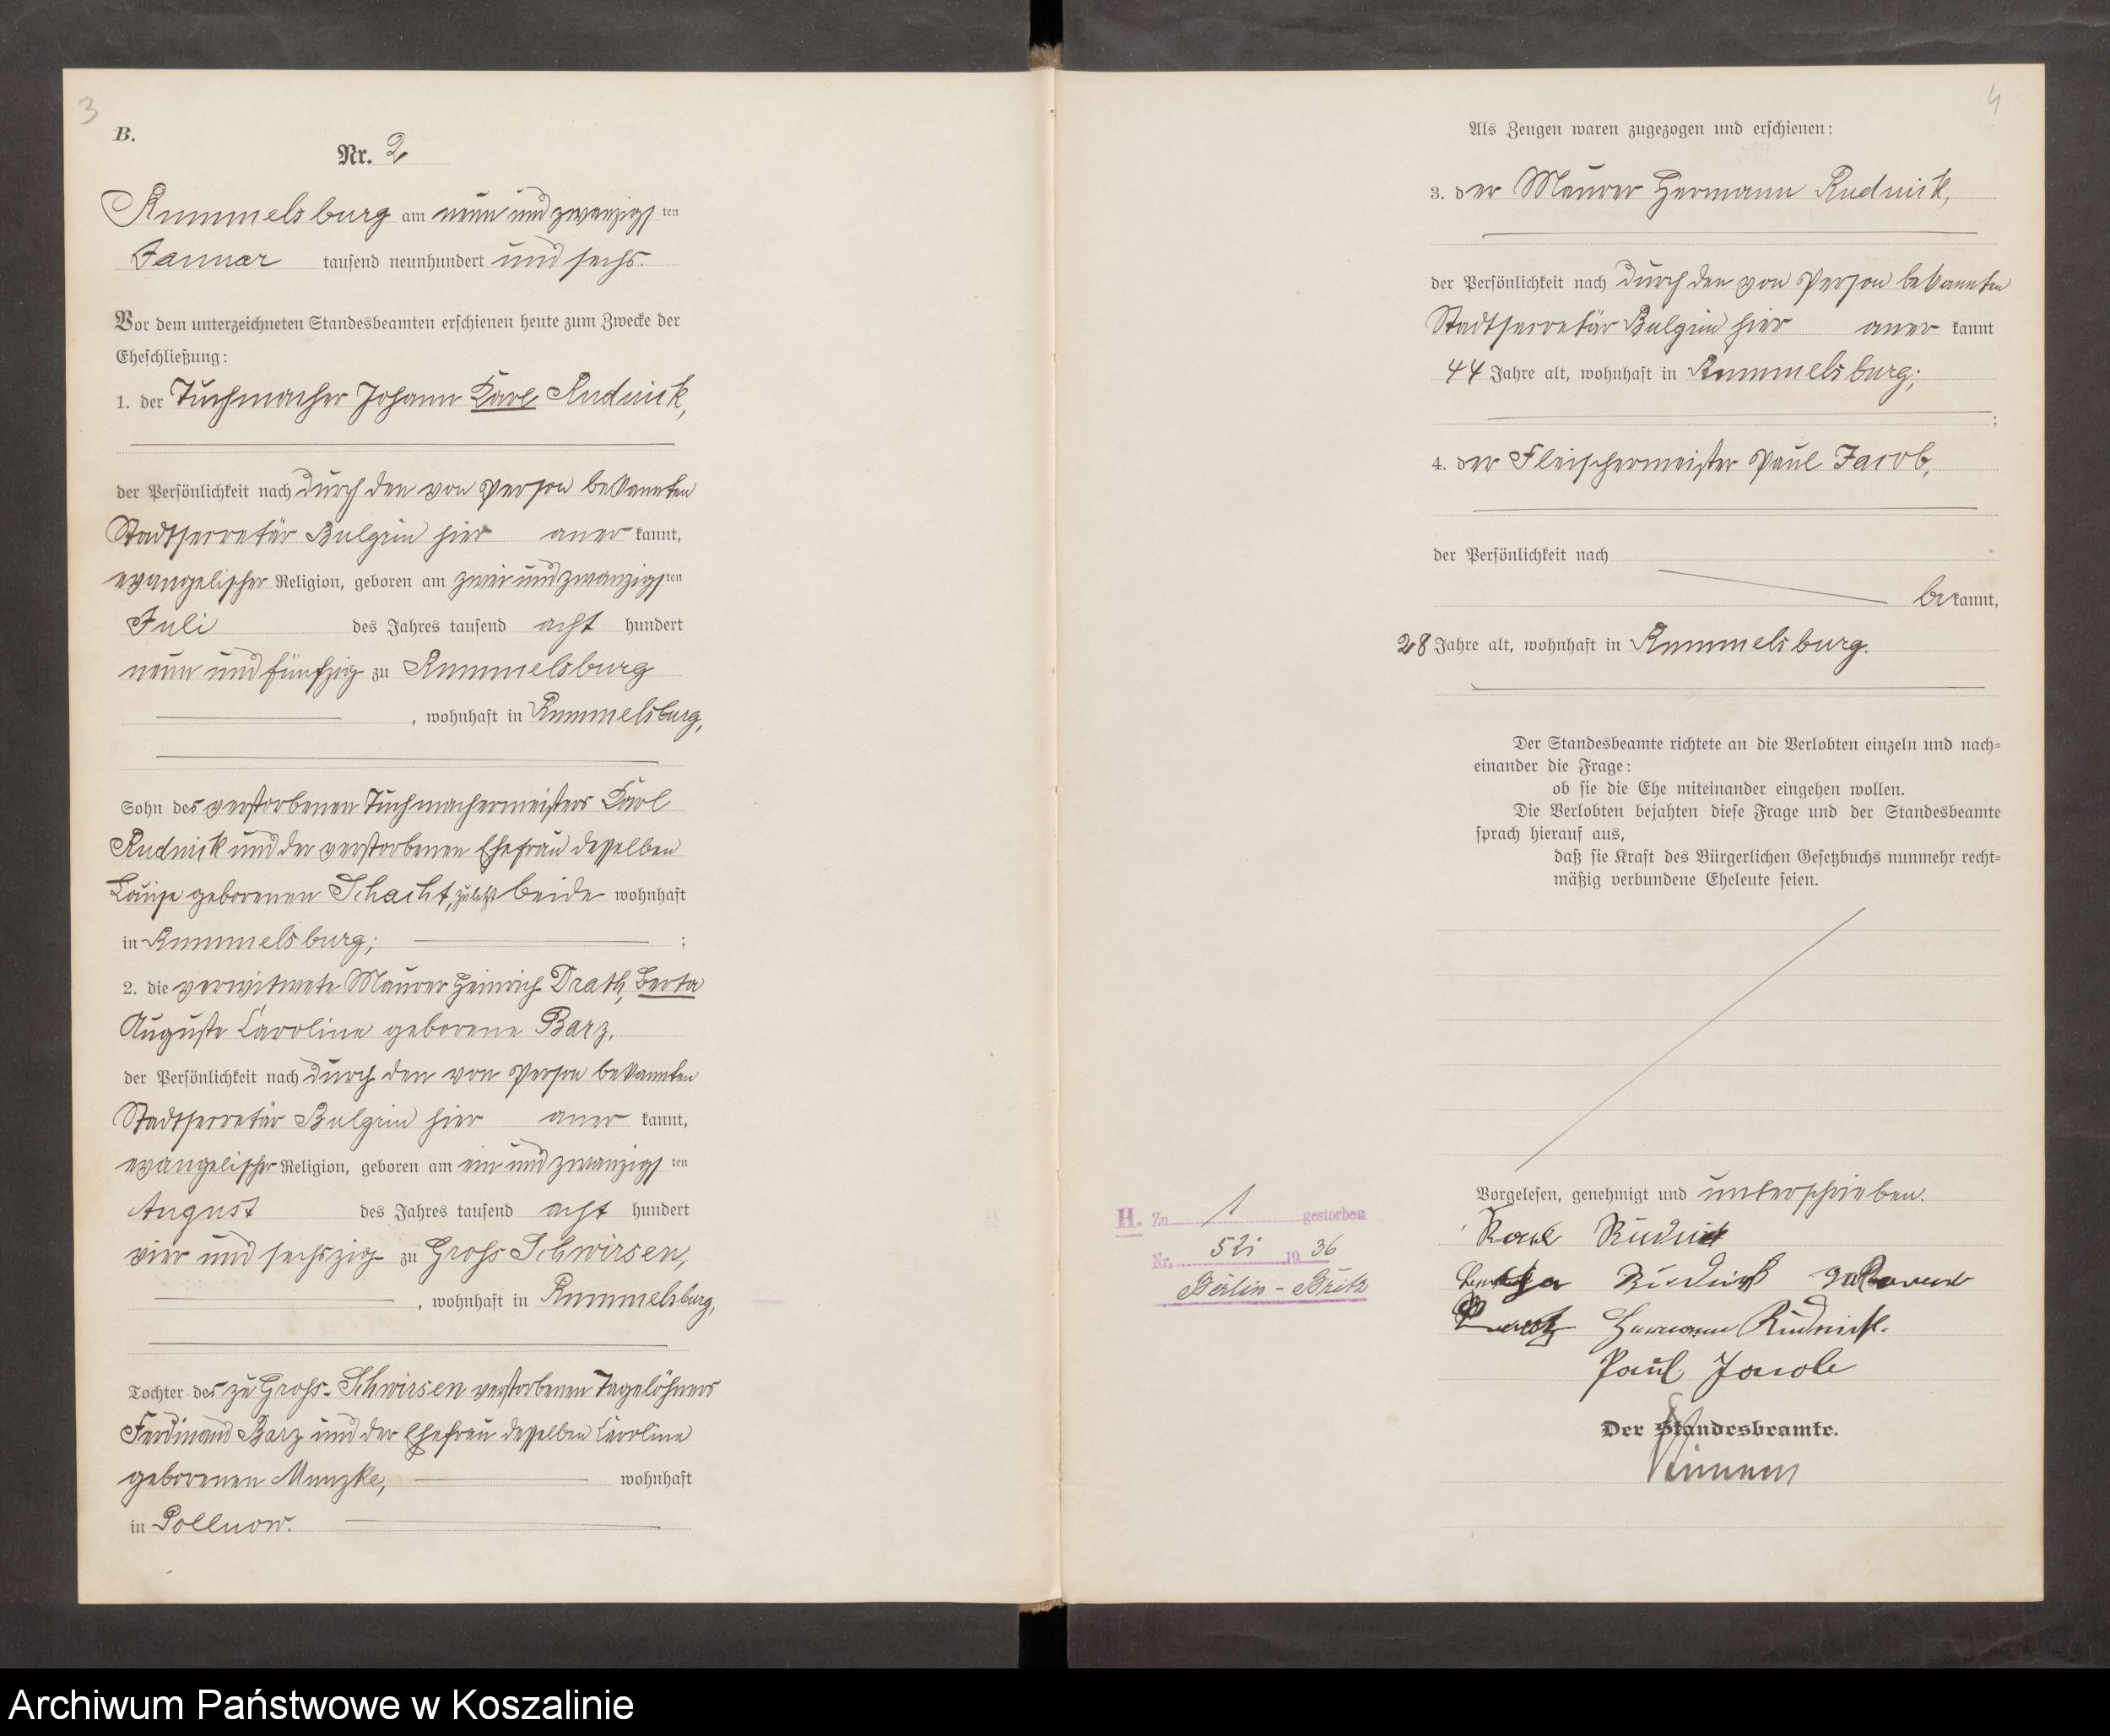 3
B.
Nr. 2
Rummelsburg am neun und zwanzigsten
Januar tausend neunhundert und sechs.
Vor dem unterzeichneten Standesbeamten erschienen heute zum Zwecke der
Eheschließung:
1. der Tuchmacher Johann Karl Rudnick,
der Persönlichkeit nach durch den von Person bekannten
Stadtsecretär Bulgrin hier anerkannt,
evangelischer Religion, geboren am zwei und zwanzigsten
Juli des Jahres tausend acht hundert
neun und fünfzig zu Rummelsburg
, wohnhaft in Rummelsburg,
Sohn des verstorbenen Tuchmachermeisters Karl
Rudnick und der verstorbenen Ehefrau desselben
Louise geborenen Schacht, zuletzt beide wohnhaft
in Rummelsburg; ;
2. die verwitwete Maurer Heinrich Drath, Berta
Auguste Caroline geborene Barz,
der Persönlichkeit nach durch den von Person bekannten
Stadtsecretär Bulgrin hier anerkannt,
evangelischer Religion, geboren am ein und zwanzigsten
August des Jahres tausend acht hundert
vier und sechszig zu Gross Schwirsen,
, wohnhaft in Rummelsburg,
Tochter des zu Gross-Schwirsen verstorbenen Tagelöhners
Ferdinand Barz und der Ehefrau desselben Caroline
geborenen Manzke, wohnhaft
in Pollnow.
4
Als Zeugen waren zugezogen und erschienen:
3. der Maurer Hermann Rudnick,
der Persönlichkeit nach durch den von Person bekannten
Stadtsecretär Bulgrin hier anerkannt
44 Jahre alt, wohnhaft in Rummelsburg;
;
4. der Fleischermeister Paul Jacob,
der Persönlichkeit nach
bekannt,
28 Jahre alt, wohnhaft in Rummelsburg.
Der Standesbeamte richtete an die Verlobten einzeln und nach-
einander die Frage:
ob sie die Ehe miteinander eingehen wollen.
Die Verlobten bejahten diese Frage und der Standesbeamte
sprach hierauf aus,
daß sie Kraft des Bürgerlichen Gesetzbuchs nunmehr recht-
mäßig verbundene Eheleute seien.
H. Zu 1 gestorben
Nr. 521 1936
Berlin-Britz
Vorgelesen, genehmigt und unterschrieben.
Karl Rudnick
Berta Rudnick geborene
Barz Hermann Rudnick.
Paul Jacob
Der Standesbeamte.
Archiwum Państwowe w Koszalinie